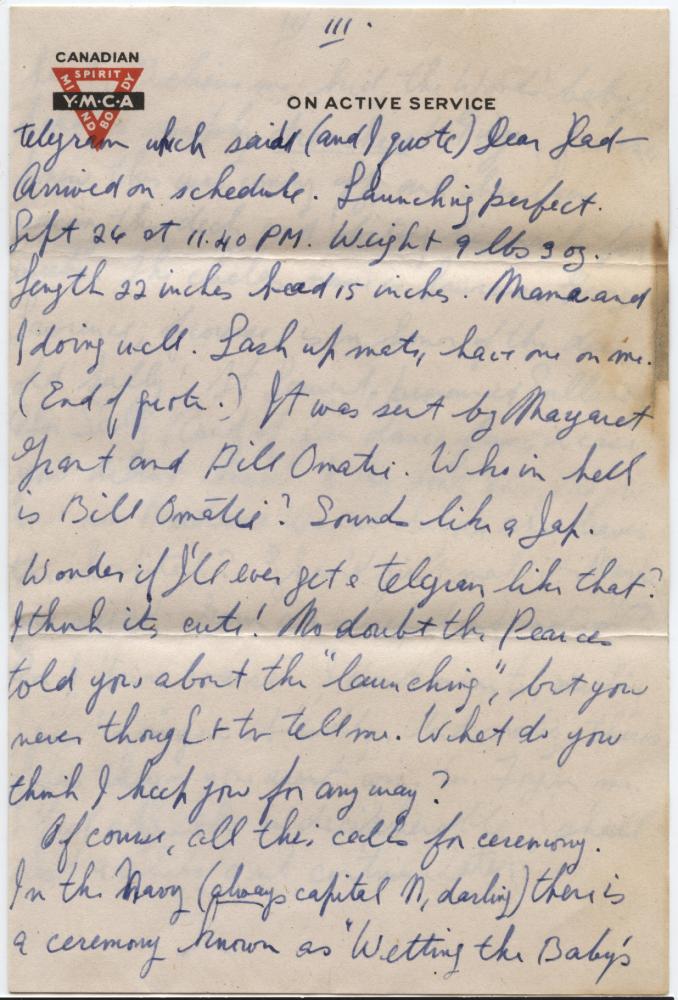 III.
CANADIAN
SPIRIT
MIND
BODY
Y·M·C·A
ON ACTIVE SERVICE
telegram which said (and I quote) Dear Dad—
Arrived on schedule. Launching perfect.
Sept 26 at 11.40 PM. Weight 9 lbs 3 oz.
Length 22 inches head 15 inches. Mama and
I doing well. Lash up mate, have one on me.
(End of quote.) It was sent by Margaret
Grant and Bill Omatie. Who in hell
is Bill Omatie? Sounds like a Jap.
Wonder if I'll ever get a telegram like that?
I think its cute! No doubt the Pearces
told you about the "launching", but you
never thought to tell me. What do you
think I keep you for any way?
Of course, all this calls for ceremony.
In the Navy (always capital N, darling) there is
a ceremony known as "Wetting the Baby's